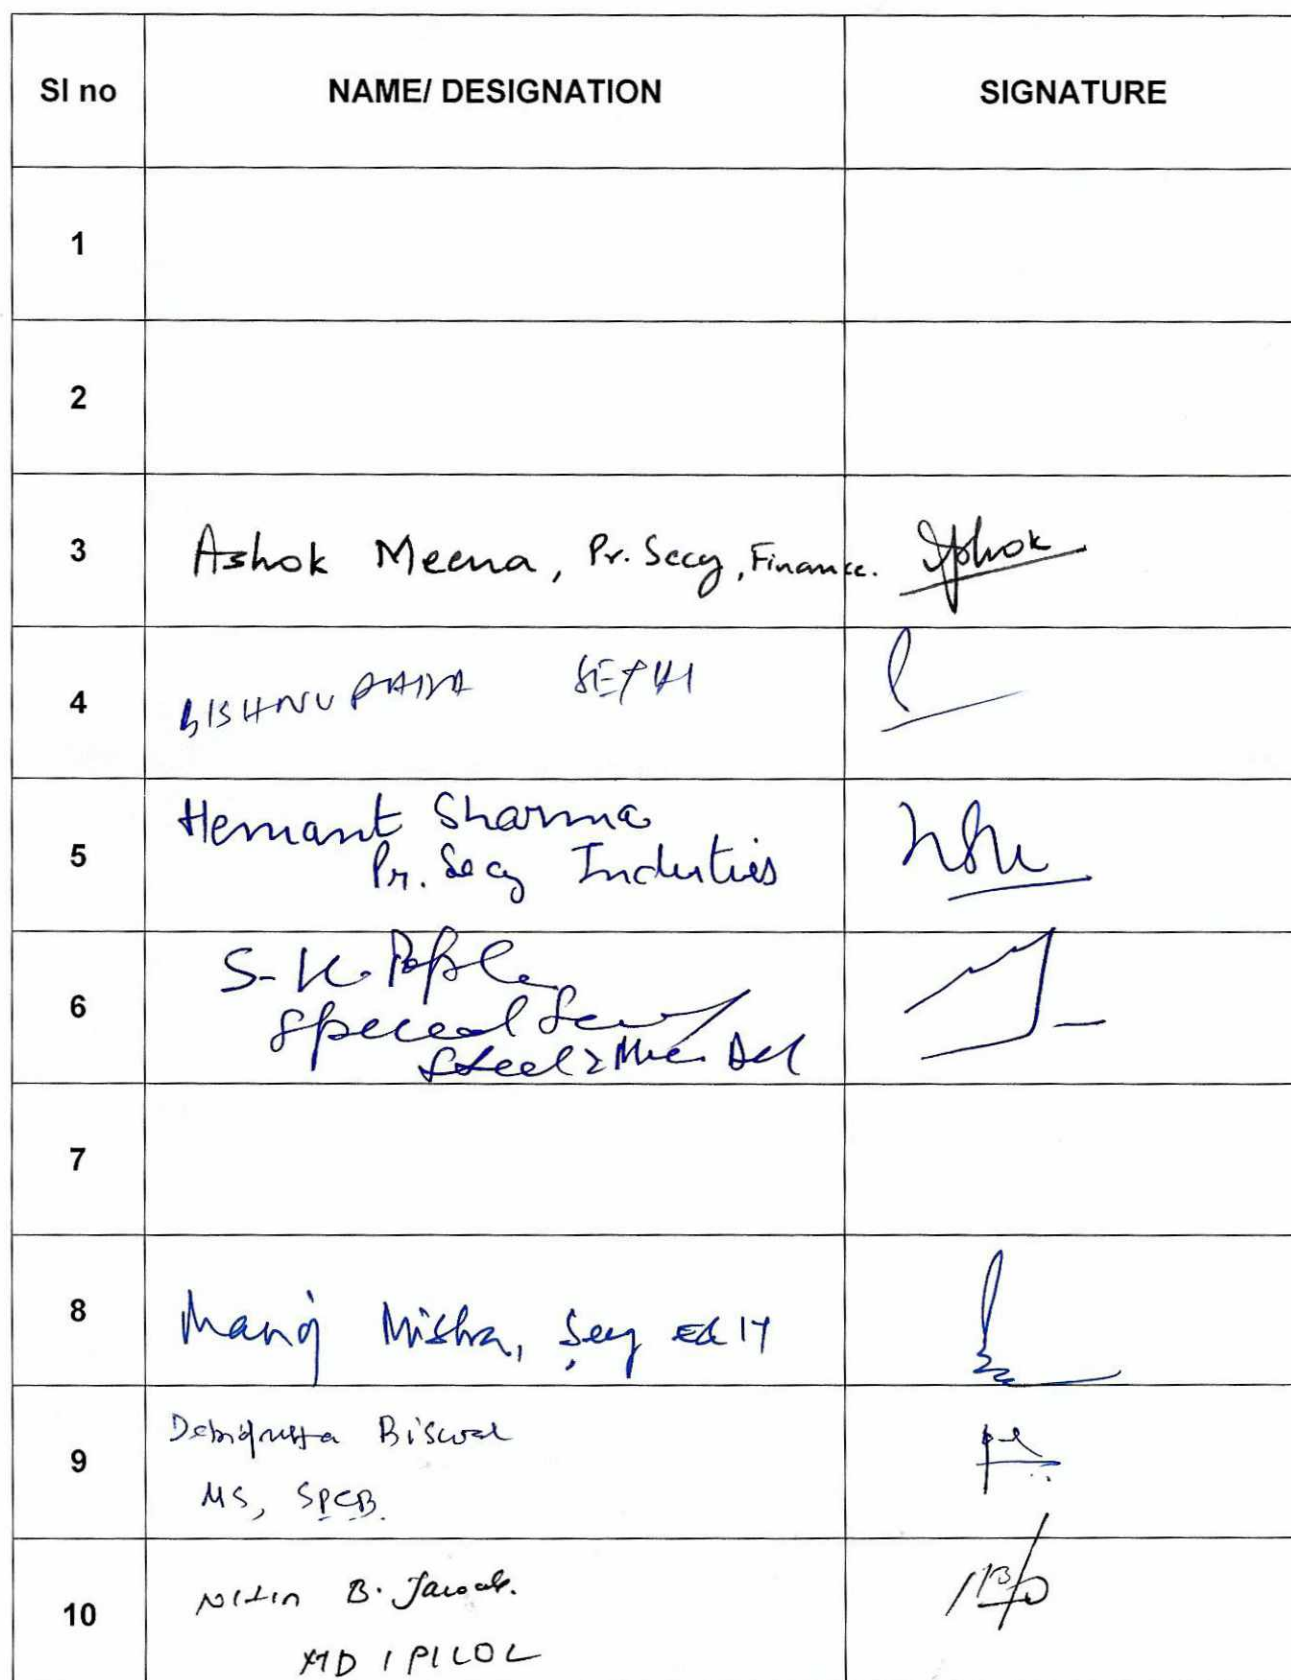 Sl no NAME/ DESIGNATION SIGNATURE
1
2
3 Ashok Meena, Pr. Secy, Finance. Ashok
4 BISHNUPADA SETHI
5 Hemant Sharma
Pr. Secy Industies
6 S. K. Popli
Special Secy
Steel & Mines
7
8 Manoj Mishra, Secy E& IT
9 Debidutta Biswal
MS, SPCB.
10 Nitin B. Jawale.
MD IPICOL